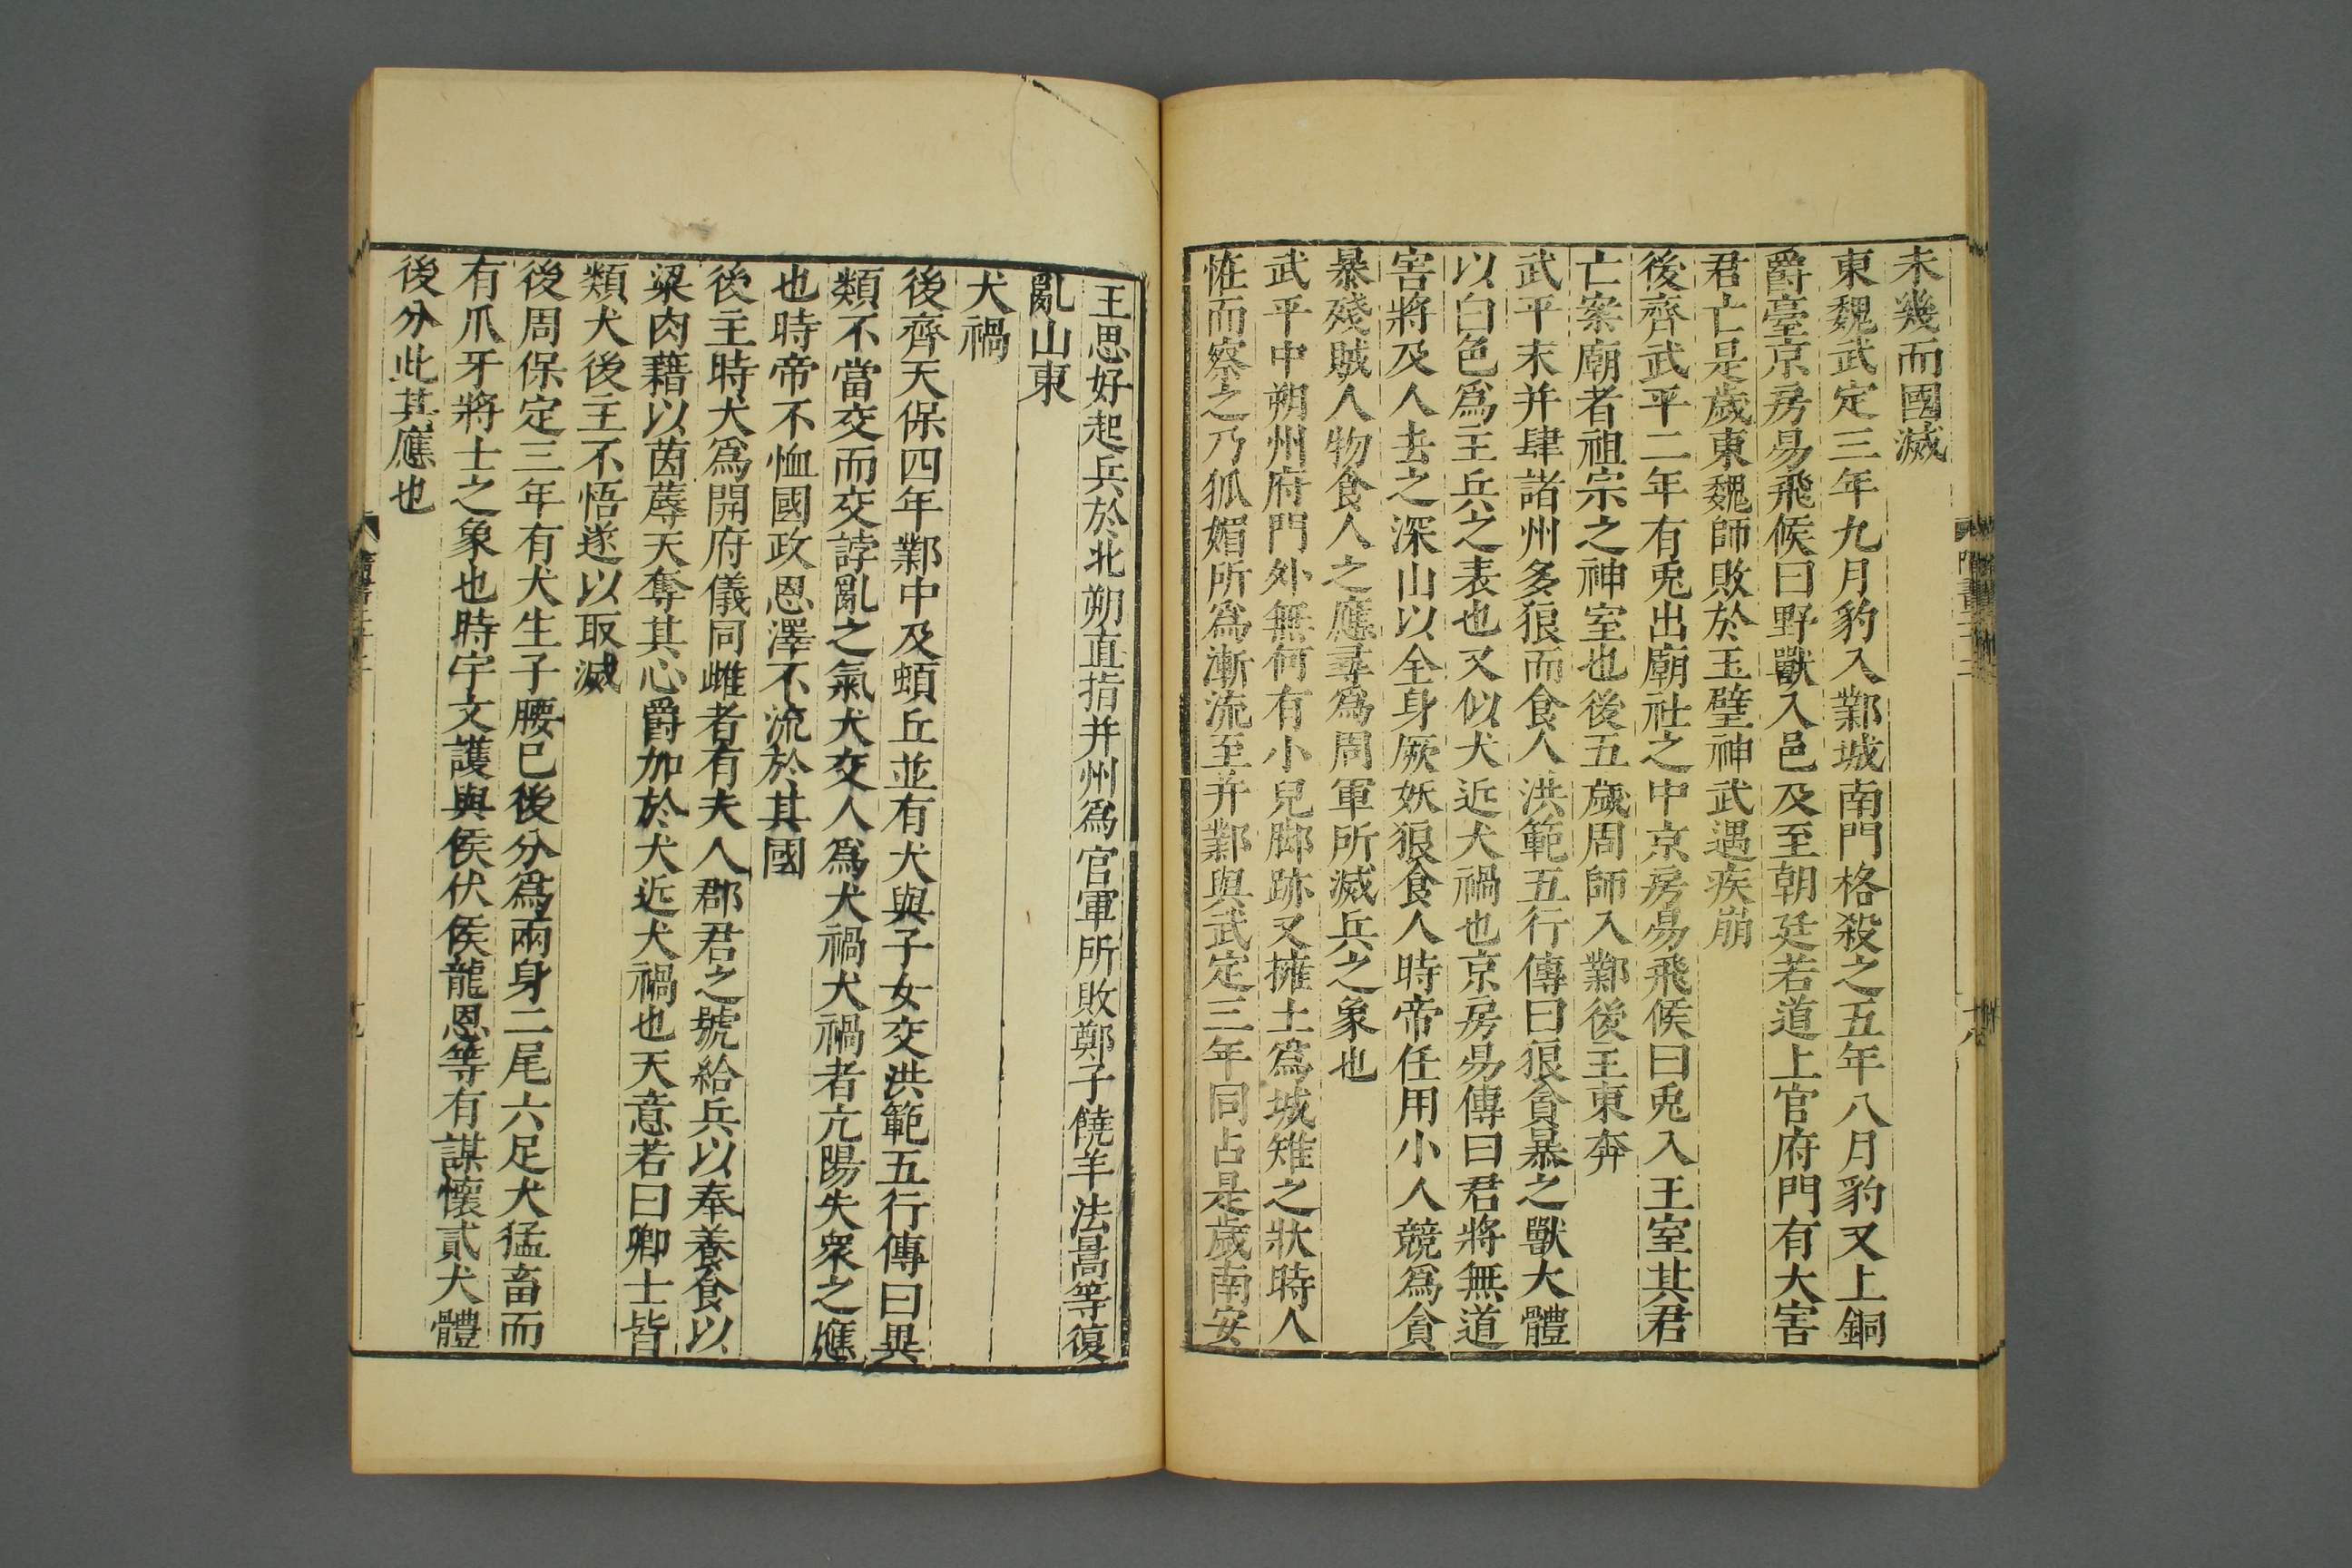 未幾而國滅
東魏武定三年九月豹入鄴城南門格殺之五年八月豹又上銅
爵臺京房易飛候曰野獸入邑及至朝廷若道上官府門有大害
君亡是歲東魏師敗於玉壁神武遇疾崩
後齊武平二年有兎出廟社之中京房易飛候曰兎入王室其君
亡案廟者祖宗之神室也後五歲周師入鄴後主東奔
武平末并肆諸州多狼而食人洪範五行傳曰狼貪暴之獸大體
以白色爲主兵之表也又似犬近犬禍也京房易傳曰君將無道
害將及人去之深山以全身厥妖狼食人時帝任用小人競爲貪
暴殘賊人物食人之應尋爲周軍所滅兵之象也
武平中朔州府門外無何有小兒脚跡又擁土爲城雉之狀時人
恠而察之乃狐媚所爲漸流至并鄴與武定三年同占是歲南安
王思好起兵於北朔直指并州爲官軍所敗鄭子饒羊法暠等復
亂山東
犬禍
後齊天保四年鄴中及頓丘並有犬與子女交洪範五行傳曰異
類不當交而交誖亂之氣犬交人爲犬禍犬禍者亢陽失衆之應
也時帝不恤國政恩澤不流於其國
後主時犬爲開府儀同雌者有夫人郡君之號給兵以奉養食以
粱肉藉以茵蓐天奪其心爵加於犬近犬禍也天意若曰卿士皆
類犬後主不悟遂以取滅
後周保定三年有犬生子腰已後分爲兩身二尾六足犬猛畜而
有爪牙將士之象也時宇文護與侯伏侯龍恩等有謀懷貳犬體
後分此其應也